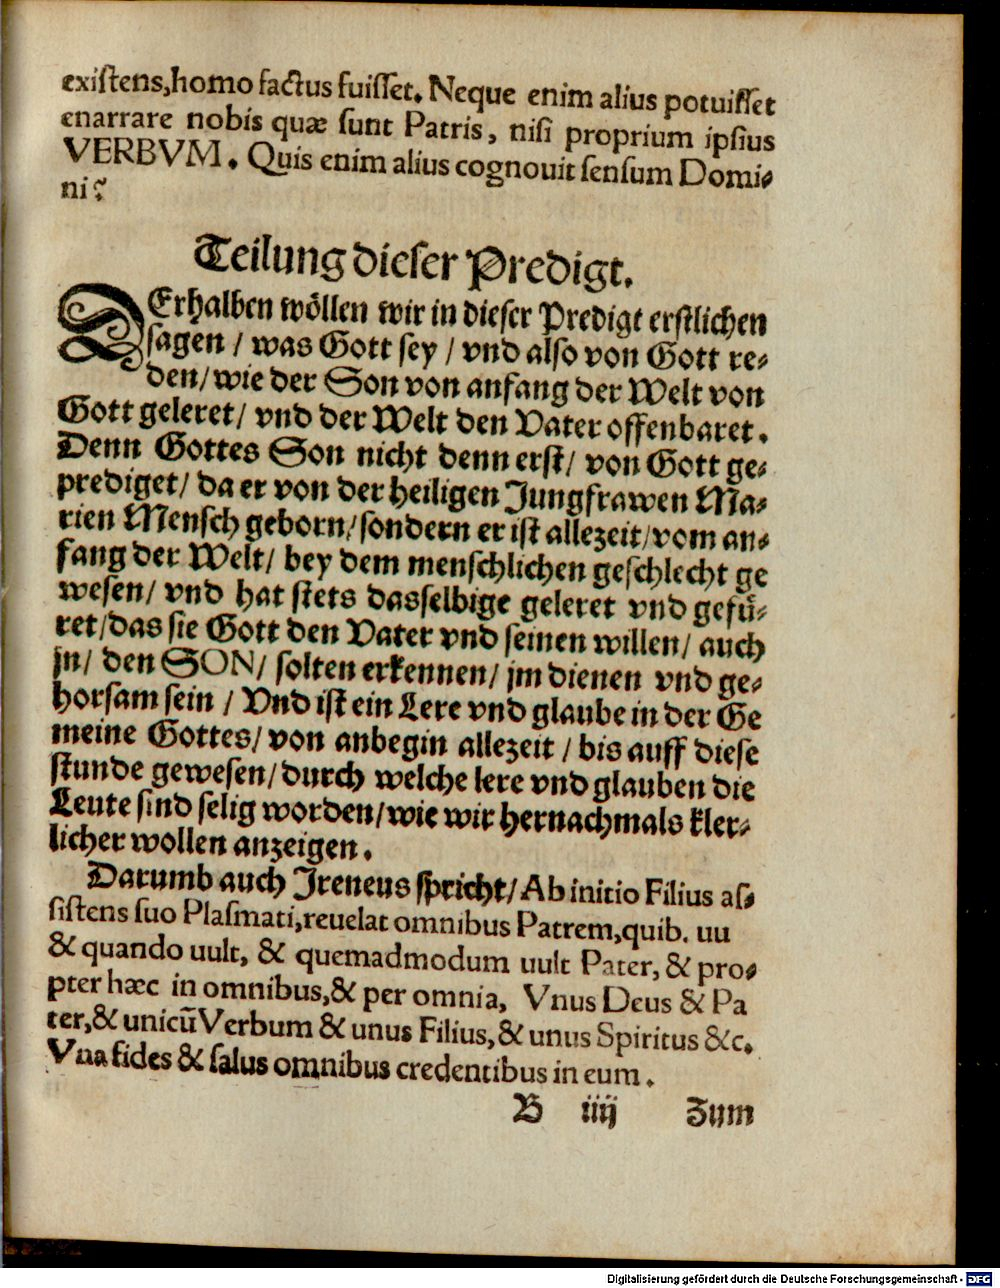 existens,homo factus fuisset. Neque enim alius potuisset
enarrare nobis quæ sunt Patris, nisi proprium ipsius
VERBVM. Quis enim alius cognouit sensum Domi-
ni?
Teilung dieser Predigt.
DErhalben wöllen wir in dieser Predigt erstlichen
sagen / was Gott sey / vnd also von Gott re-
den/ wie der Son von anfang der Welt von
Gott geleret/ vnd der Welt den Vater offenbaret.
Denn Gottes Son nicht denn erst/ von Gott ge-
prediget/ da er von der heiligen Jungfrawen Ma-
rien Mensch geborn/ sondern er ist allezeit/vom an-
fang der Welt/ bey dem menschlichen geschlecht ge
wesen/ vnd hat stets dasselbige geleret vnd gefü-
ret/das sie Gott den Vater vnd seinen willen/ auch
jn/ den SON/ solten erkennen/ jm dienen vnd ge-
horsam sein / Vnd ist ein Lere vnd glaube in der Ge
meine Gottes/ von anbegin allezeit / bis auff diese
stunde gewesen/ durch welche lere vnd glauben die
Leute sind selig worden/ wie wir hernachmals kler-
licher wollen anzeigen.
Darumb auch Jreneus spricht/ Ab initio Filius as-
sistens suo Plasmati,reuelat omnibus Patrem,quib. uu
& quando uult, & quemadmodum uult Pater, & pro-
pter hæc in omnibus,& per omnia, Vnus Deus & Pa
ter,& unicũ Verbum & unus Filius,& unus Spiritus &c.
Vna fides & salus omnibus credentibus in eum.
B iiij Zum
Digitalisierung gefördert durch die Deutsche Forschungsgemeinschaft - DFG